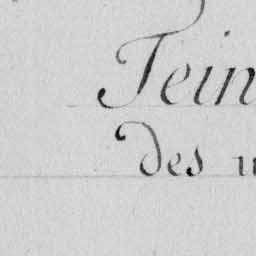 Tein
des